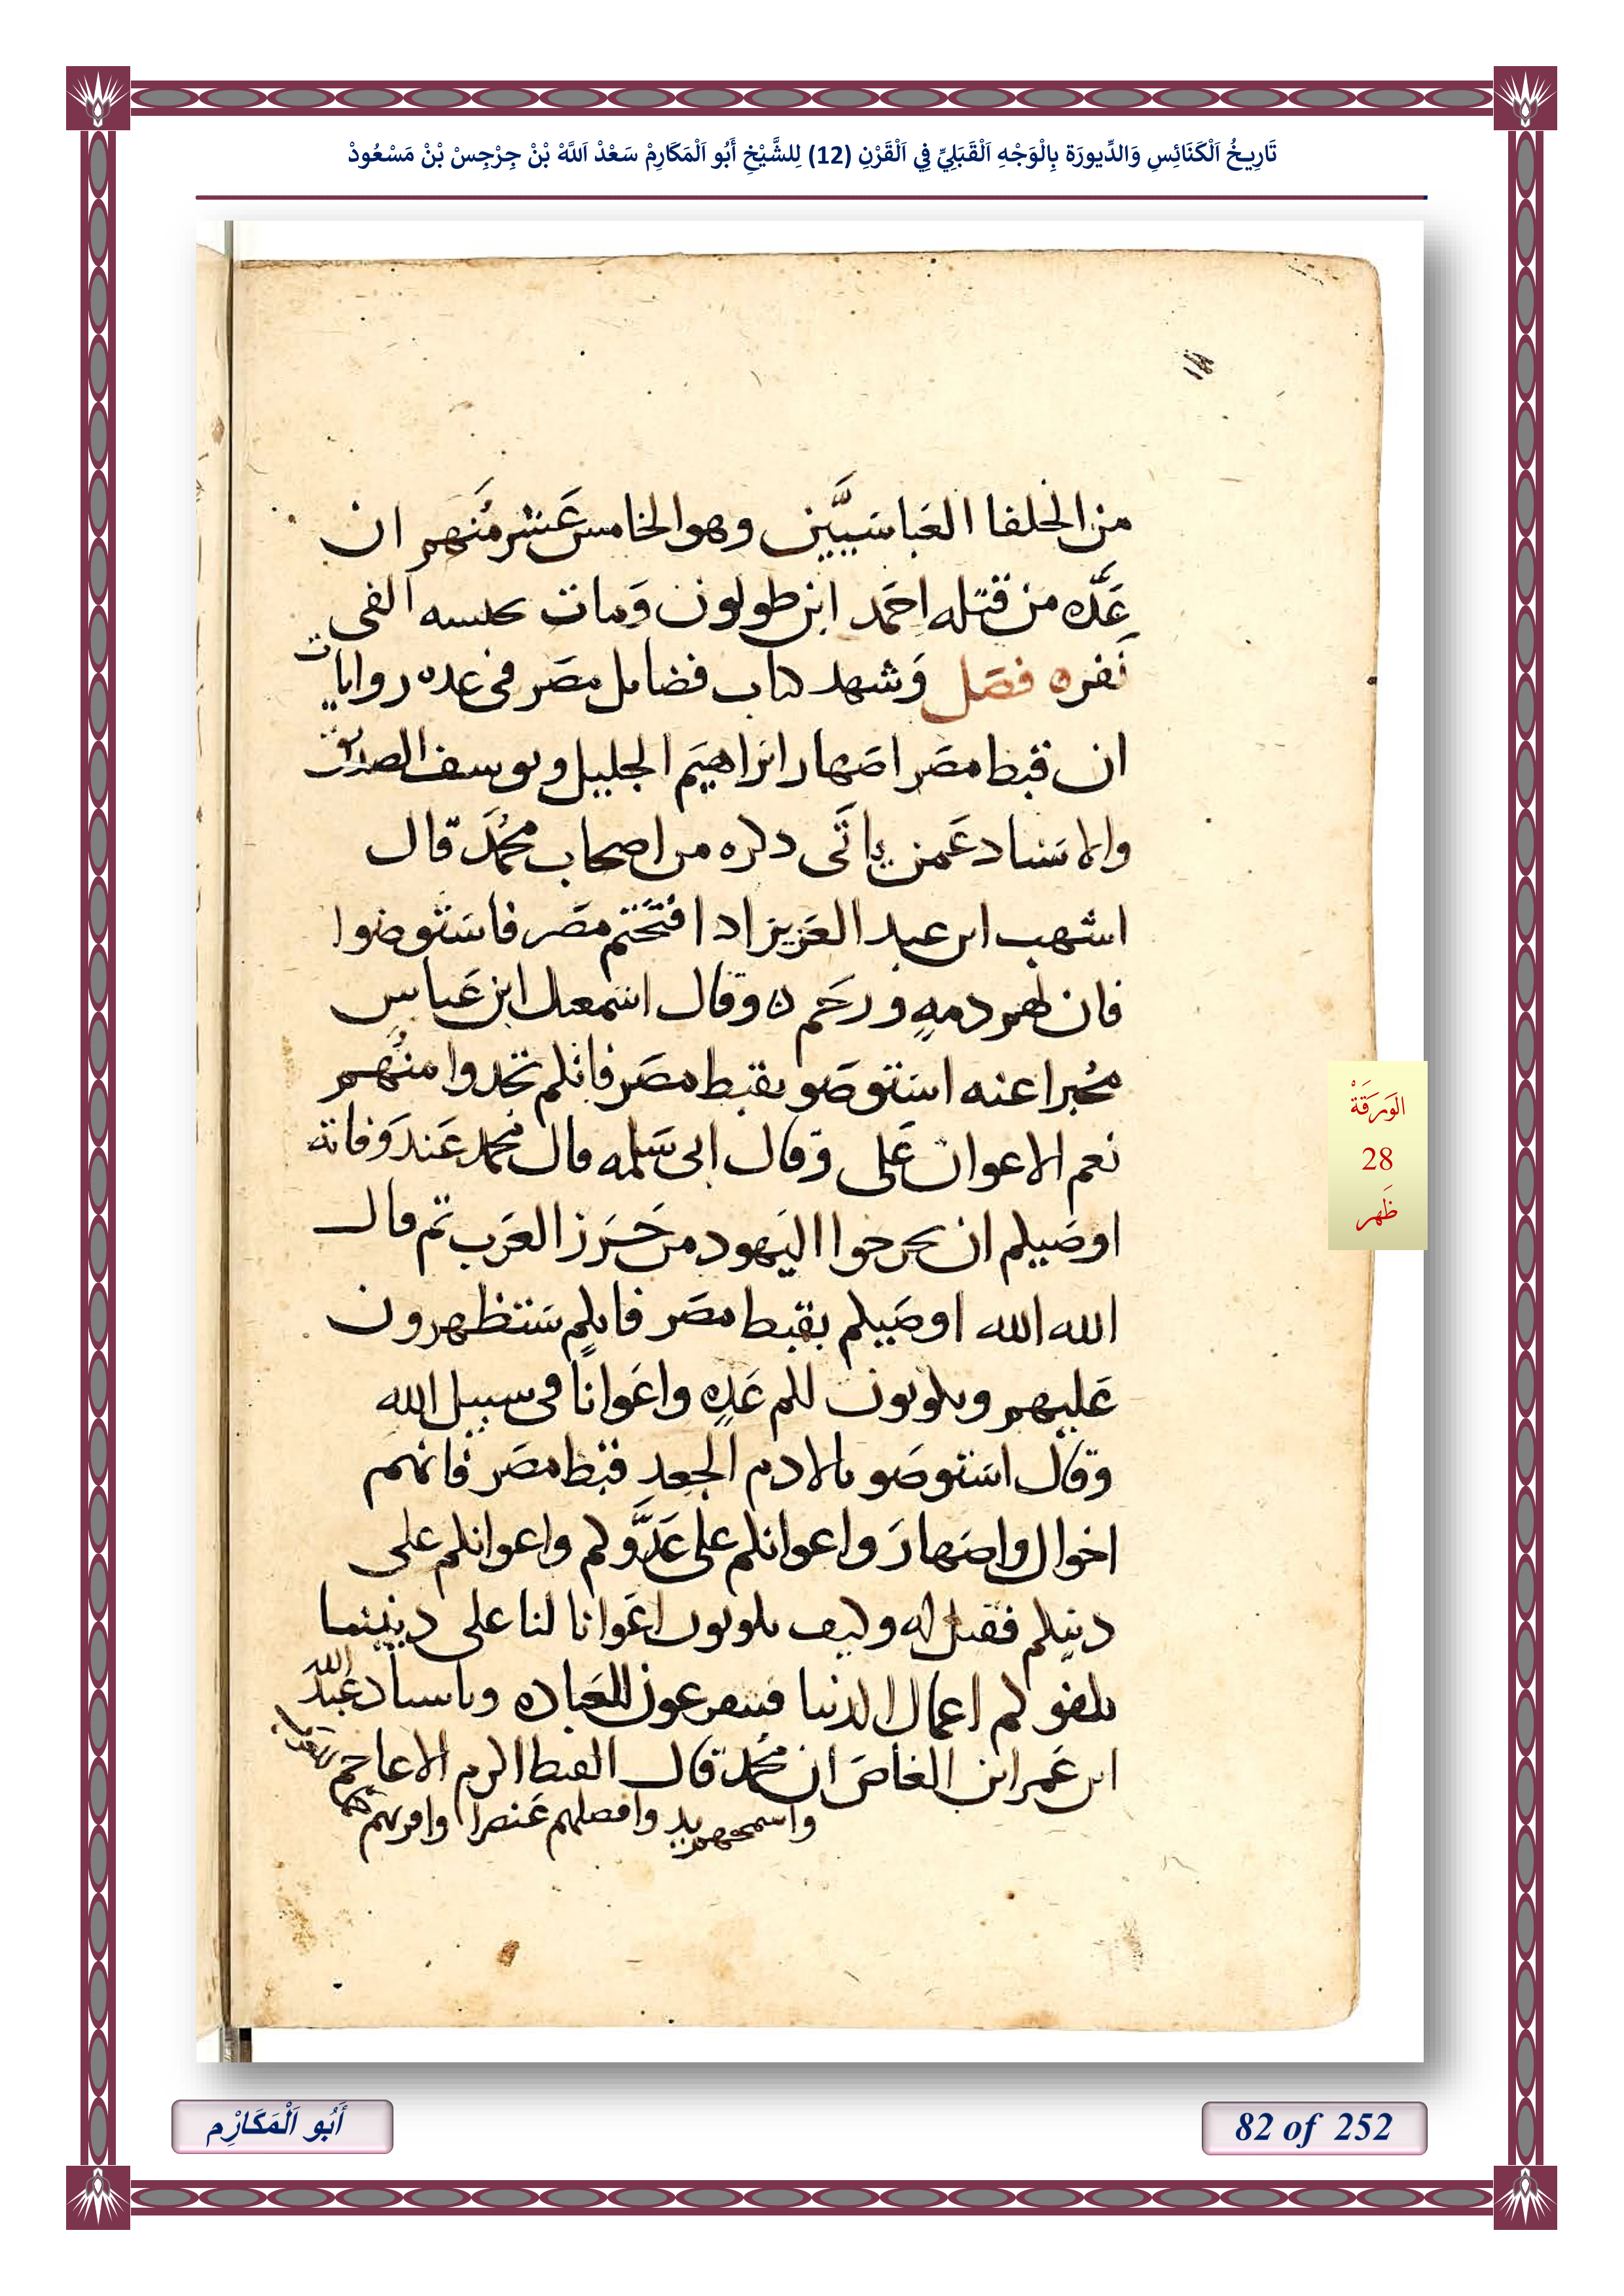 تَارِيخُ اَلْكَنَائِسِ وَالدِّيورَة بِالْوَجْهِ اَلْقَبَلِيِّ فِي اَلْقَرْنِ (12) لِلشَّيْخِ أَبُو اَلْمَكَارِمْ سَعْدْ اَللَّهْ بْنْ جِرْجِسْ بْنْ مَسْعُودْ
من الخلفا العَباسَييَّن وهو الخامس عَشر مُنَهم ان
عَدَّه من قتله احَمد ابن طولون وَمات بحبسه الفى
نَفره فصَل وَشهد كتاب فضايل مصَر فى عده روايات
ان قبط مصَر اصَهار ابراهيَم الجليل ويوسف الصديق
والاسَناد عَمن ياتَى دكره من اصحاب محمُدَ قال
اشهب ابن عبد العَزيز ادا افتَحَتم مصَر فاسَتوصوا
فان لهم دمهٍ ورحَم ه وقال اسَمعيل ابن عَباس
مخُبرا عنه اسَتوصَو بقبط مصَر فانكم تجدوا منُهم
نعم الاعوان عَلى وقال ابى سَلمه قال محمد عَند وَفاته
اوصَيكم ان يخرجوا اليَهود من جَزَرز العَرب تم قال
الله الله اوصَيكم بقبط مصَر فانكم سَتظهرون
عَليهم ويكونون لكم عَدهٍ واعَوانا فى سبيل الله
وقال اسَتوصَو بالادم الجعد قبط مصَر فانهم
اخوال واصَهارَ واعوانكم على عَدَّوكم واعوانكم على
دينكم فقيل له وكيف يكونون اعَوانا لنا على ديننا
يكفوكم اعمال الدنيا فيتفرعون للعَباده وباسناد عَبد الله
ابن عَمر ابن العَاصَ ان محمُد قال القبط اكرم الاعاجم
واسمحهم يد وافضلهم عَنصرا واقربهم
الوَرَقَةْ
28
ظَهر
أَبُو اَلْمَكَارْم
82 of 252